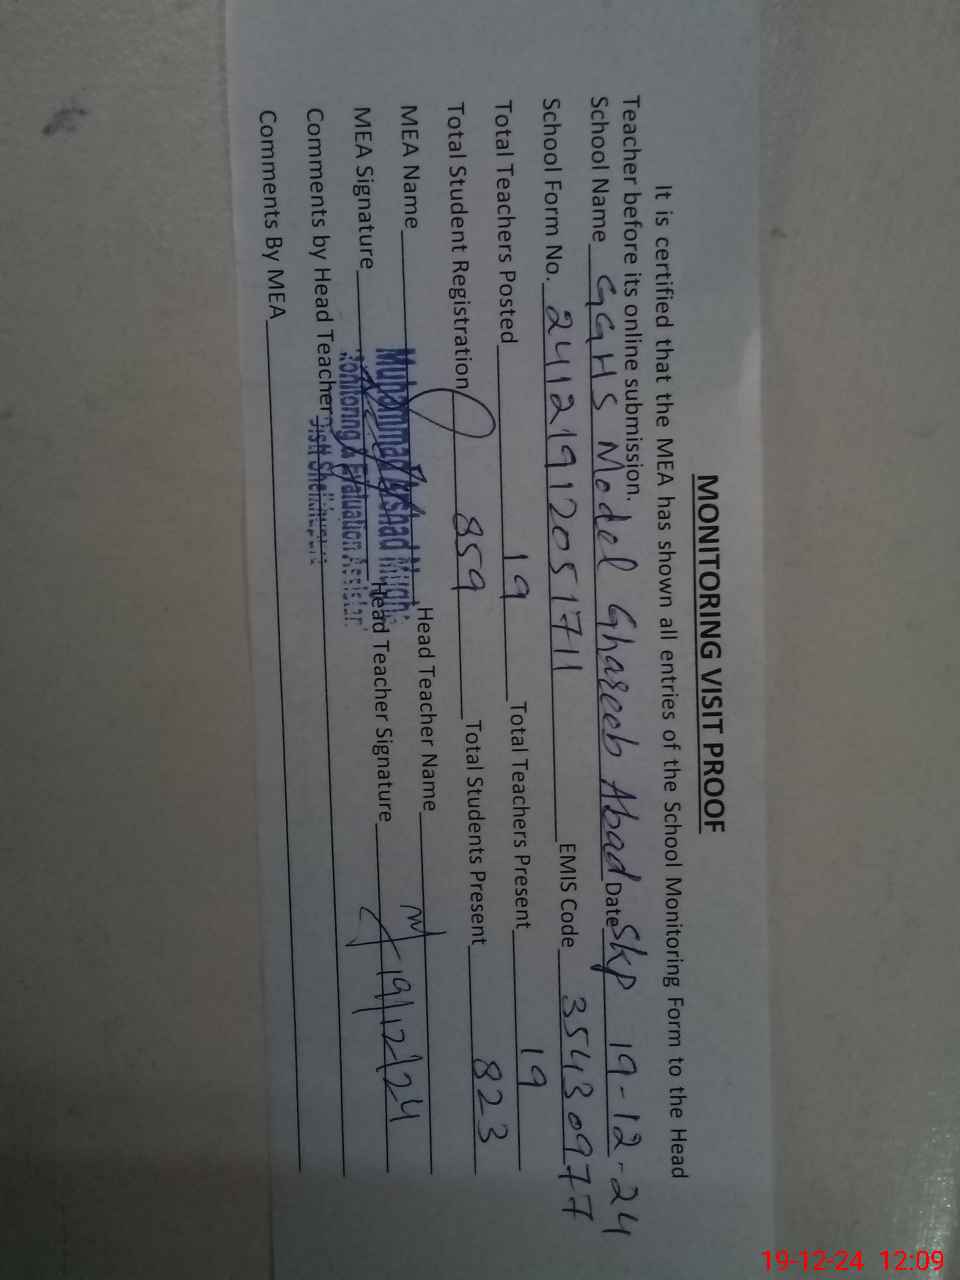 MONITORING VISIT PROOF
It is certified that the MEA has shown all entries of the School Monitoring Form to the Head
Teacher before its online submission.
School Name GGHS Model Ghareeb Abad Skp Date 19-12-24
School Form No. 241219120517 11 EMIS Code 35430977
Total Teachers Posted 19 Total Teachers Present 19
Total Student Registration 859 Total Students Present 823
MEA Name Muhammad Arshad Mughal Head Teacher Name
MEA Signature Monitoring & Evaluation Assistant Head Teacher Signature 19/12/24
Comments by Head Teacher Distt Sheikhupura
Comments By MEA
19-12-24 12:09